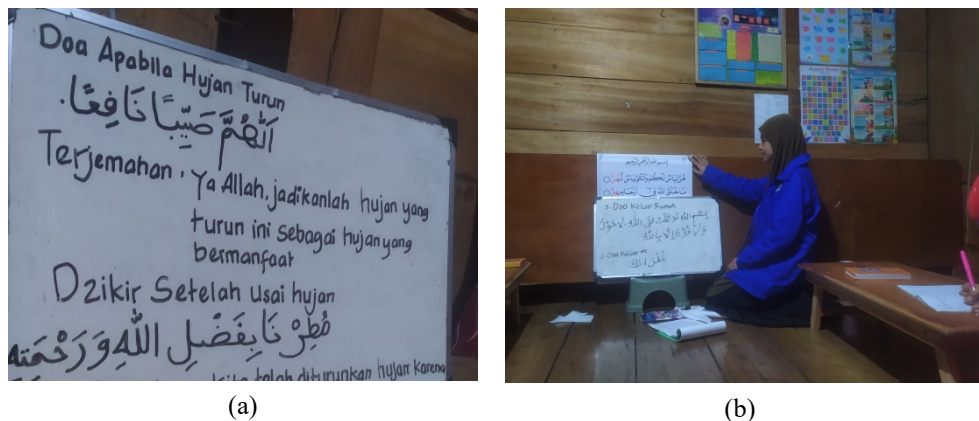 Doa Apabila Hujan Turun
اَللّٰهُمَّ صَيِّبًا نَافِعًا.
Terjemahan, Ya Allah, jadikanlah hujan yang
turun ini sebagai hujan yang
bermanfaat
Dzikir Setelah Usai hujan
مُطِرْنَا بِفَضْلِ اللّٰهِ وَرَحْمَتِهِ
telah diturunkan hujan karena
(a)
بسم الله الرحمن الرحيم
هُنَّ لِبَاسٌ لَكُمْ وَأَنْتُمْ لِبَاسٌ لَهُنَّ
مَا خَلَقَ اللّٰهُ فِيْ أَرْحَامِهِنَّ
3. Doa Keluar Rumah
بِسْمِ اللّٰهِ تَوَكَّلْتُ عَلَى اللّٰهِ، لَا حَوْلَ
وَلَا قُوَّةَ إِلَّا بِاللّٰهِ
Doa Keluar WC
(b)